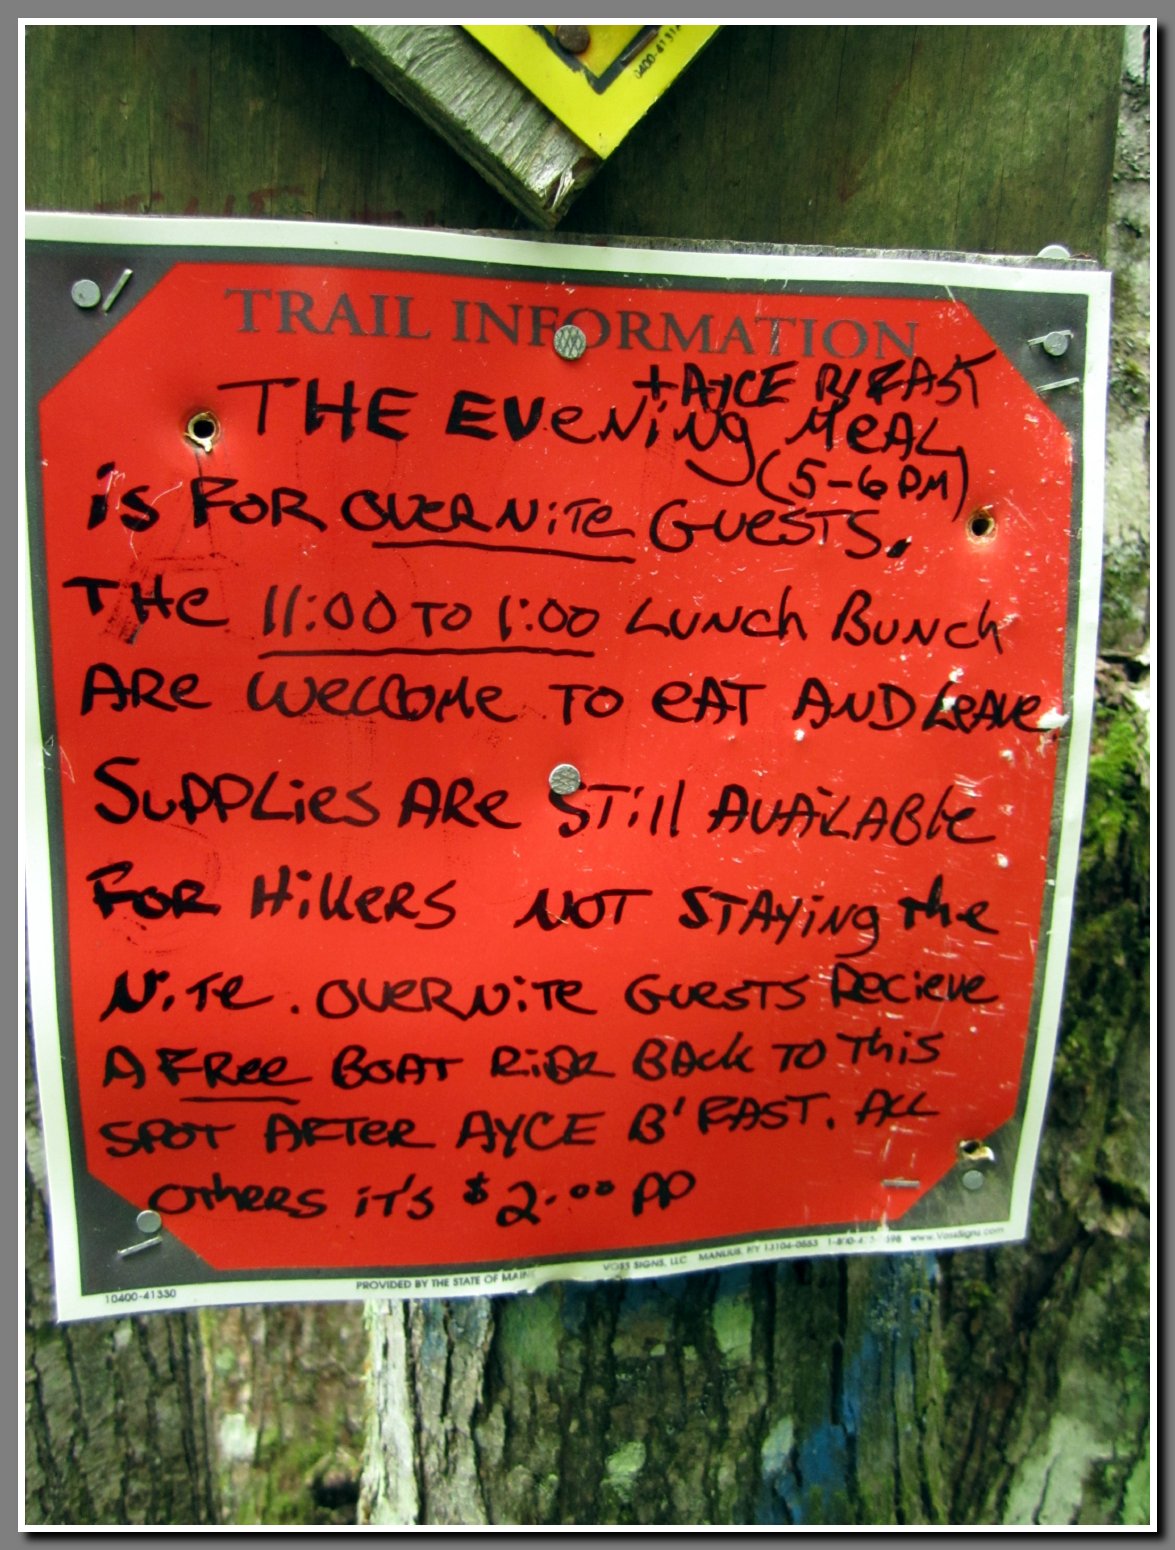 TRAIL INFORMATION
+ AYCE B'FAST
THE EVeNiNg MeAL
(5-6 PM)
iS FOR OVERNiTe GUeSTS.
THe 11:00 TO 1:00 LUNch BUNch
ARe WeLCOMe TO eAT AND LeAVe
SUPPLies ARe STill AVAiLABle
FOR HiKeRS NOT STAYing the
NiTe. OVeRNiTe GUeSTS ReCieVe
A FRee BOAT RiDe BAck TO This
SPOT AFTeR AYCE B'FAST. ALL
OTheRS iT'S $2.00 PP
10400-41330
PROVIDED BY THE STATE OF MAINE
VOSS SIGNS, LLC MANLIUS, NY 13104-0553 www.VossSigns.com